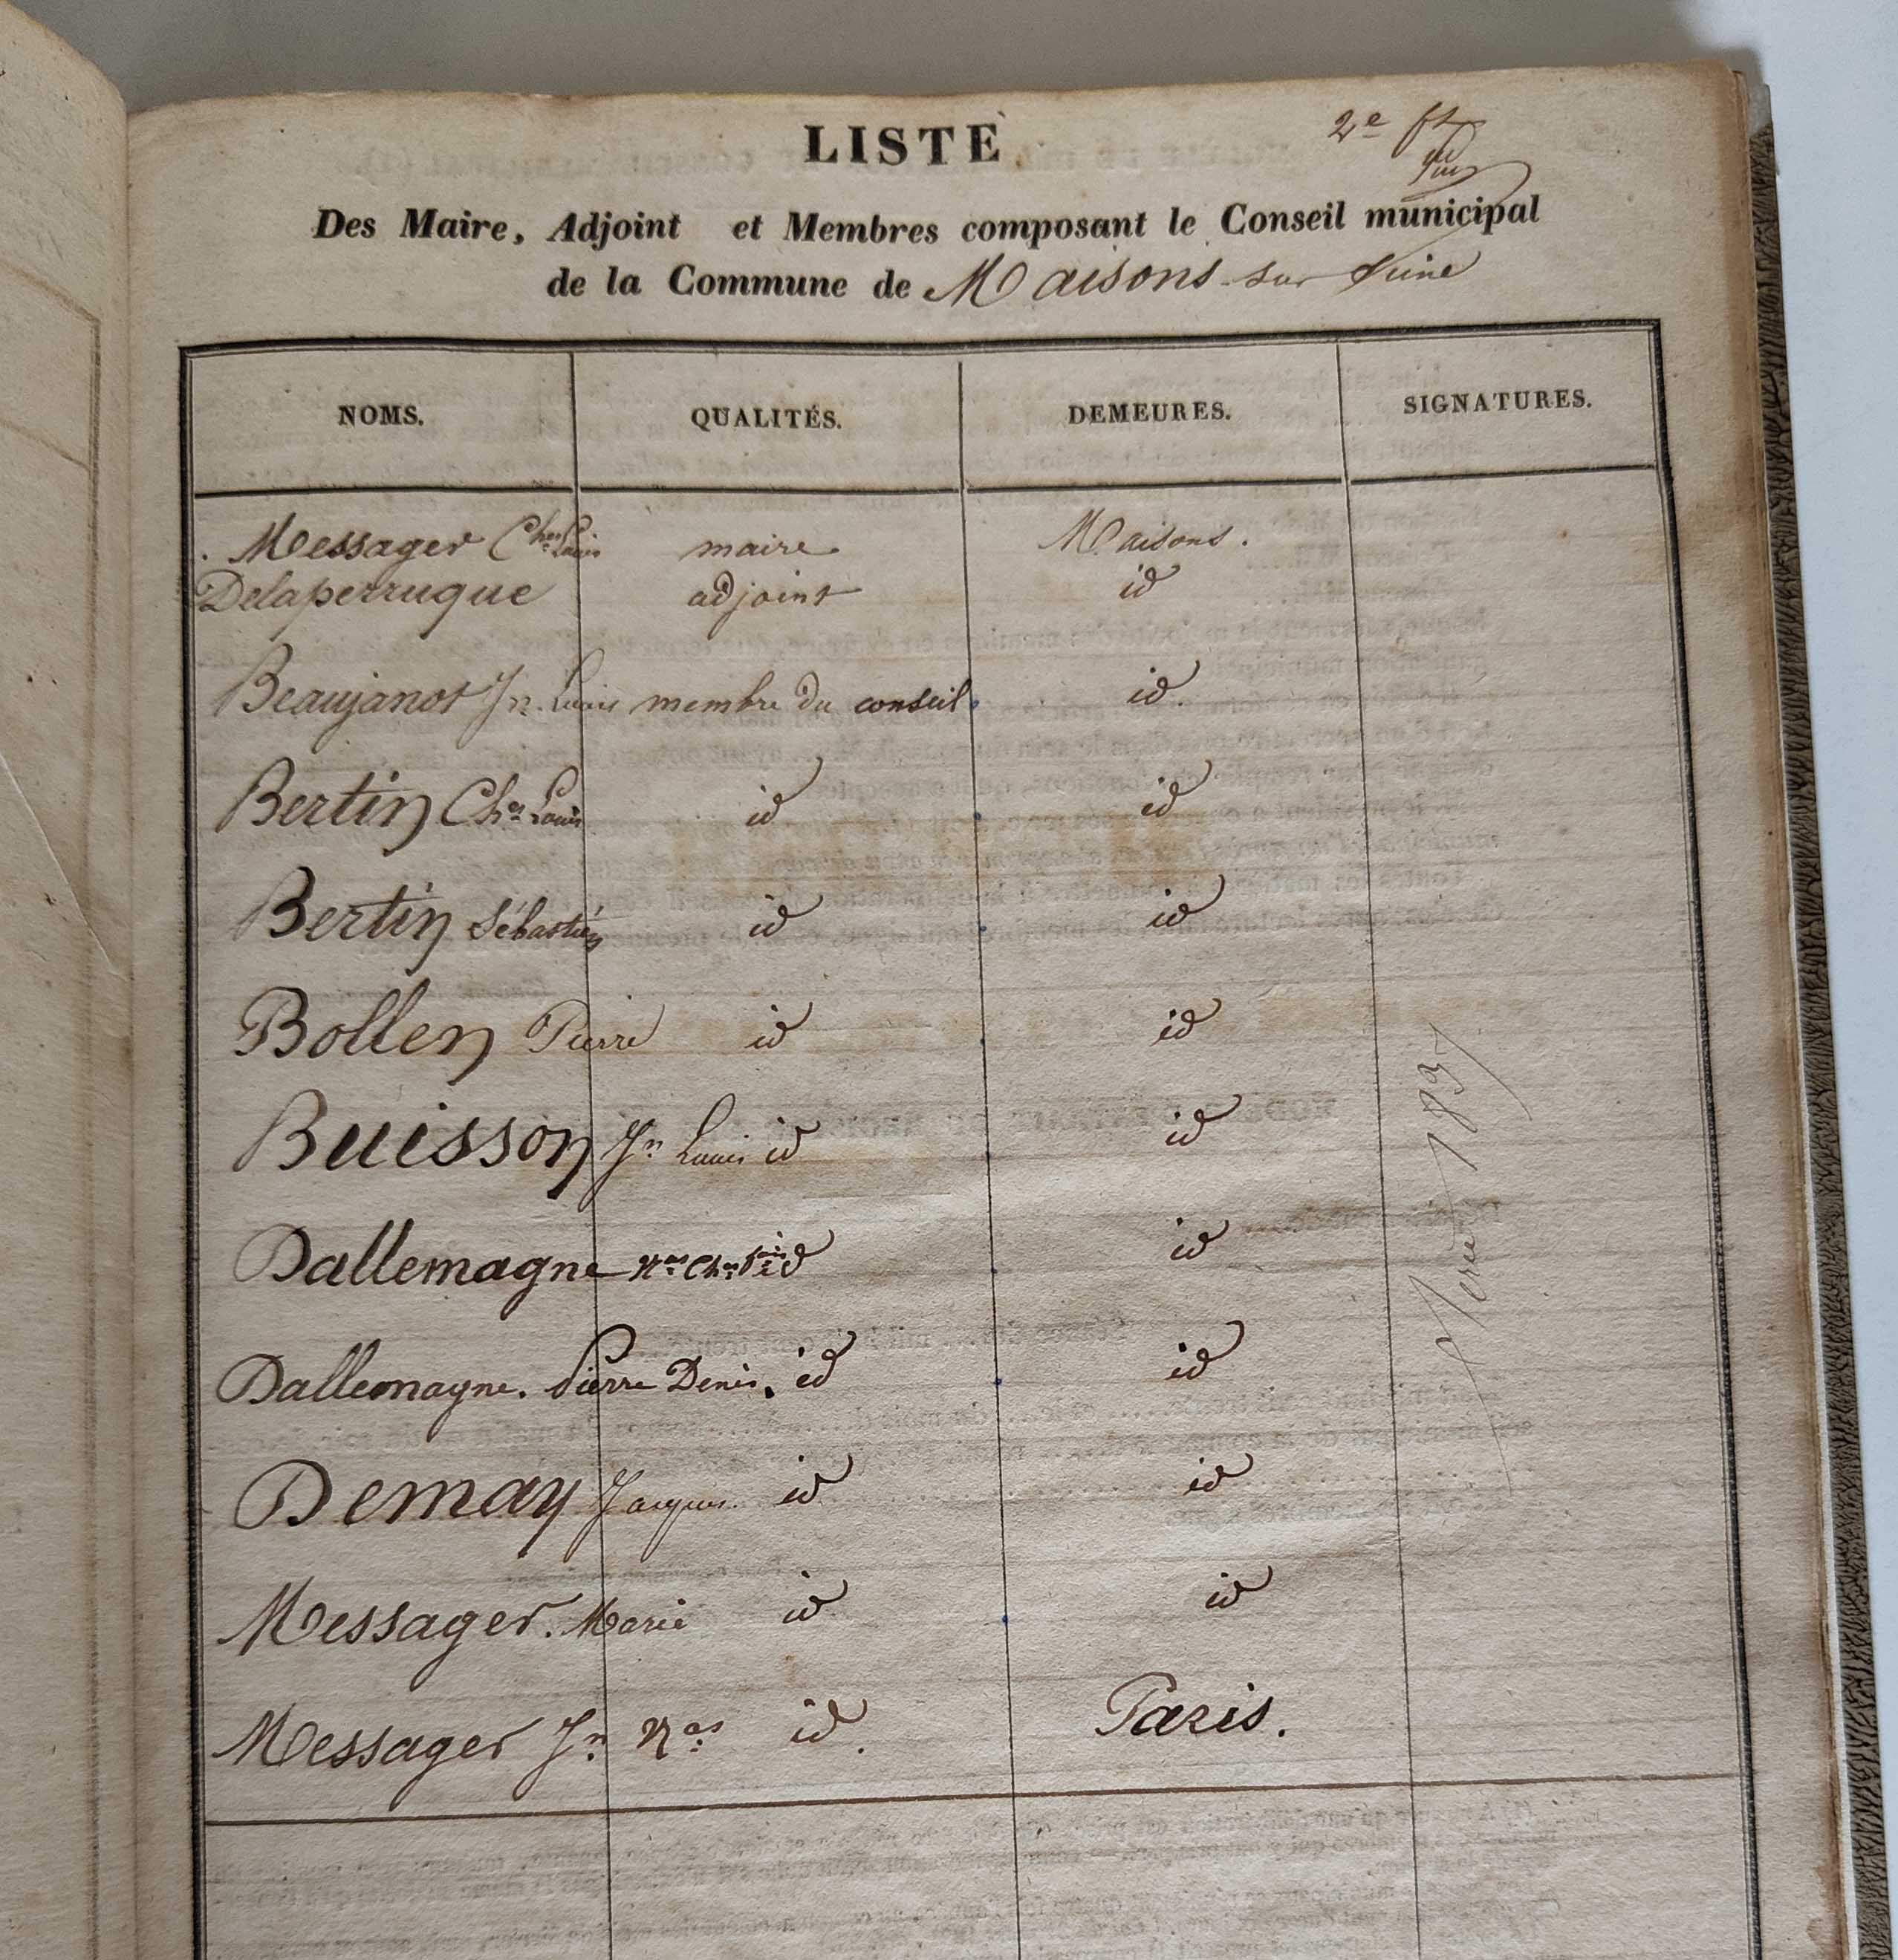 LISTE
2e ft
Des Maire, Adjoint et Membres composant le Conseil municipal
de la Commune de Maisons sur Seine
NOMS. QUALITÉS. DEMEURES. SIGNATURES.
Messager Ches Louis maire Maisons.
Delaperruque adjoint id
Beaujanot Jn. Louis membre du conseil id.
Bertin Chs Louis id id
Bertin Sébastien id id
Bollen Pierre id id
Buisson Jn Louis id id
Dallemagne Nas Chs id id
Dallemagne. Pierre Denis. id id
Demay Jacques id id
Messager. Marie id id
Messager Jn Nas id. Paris.
1837